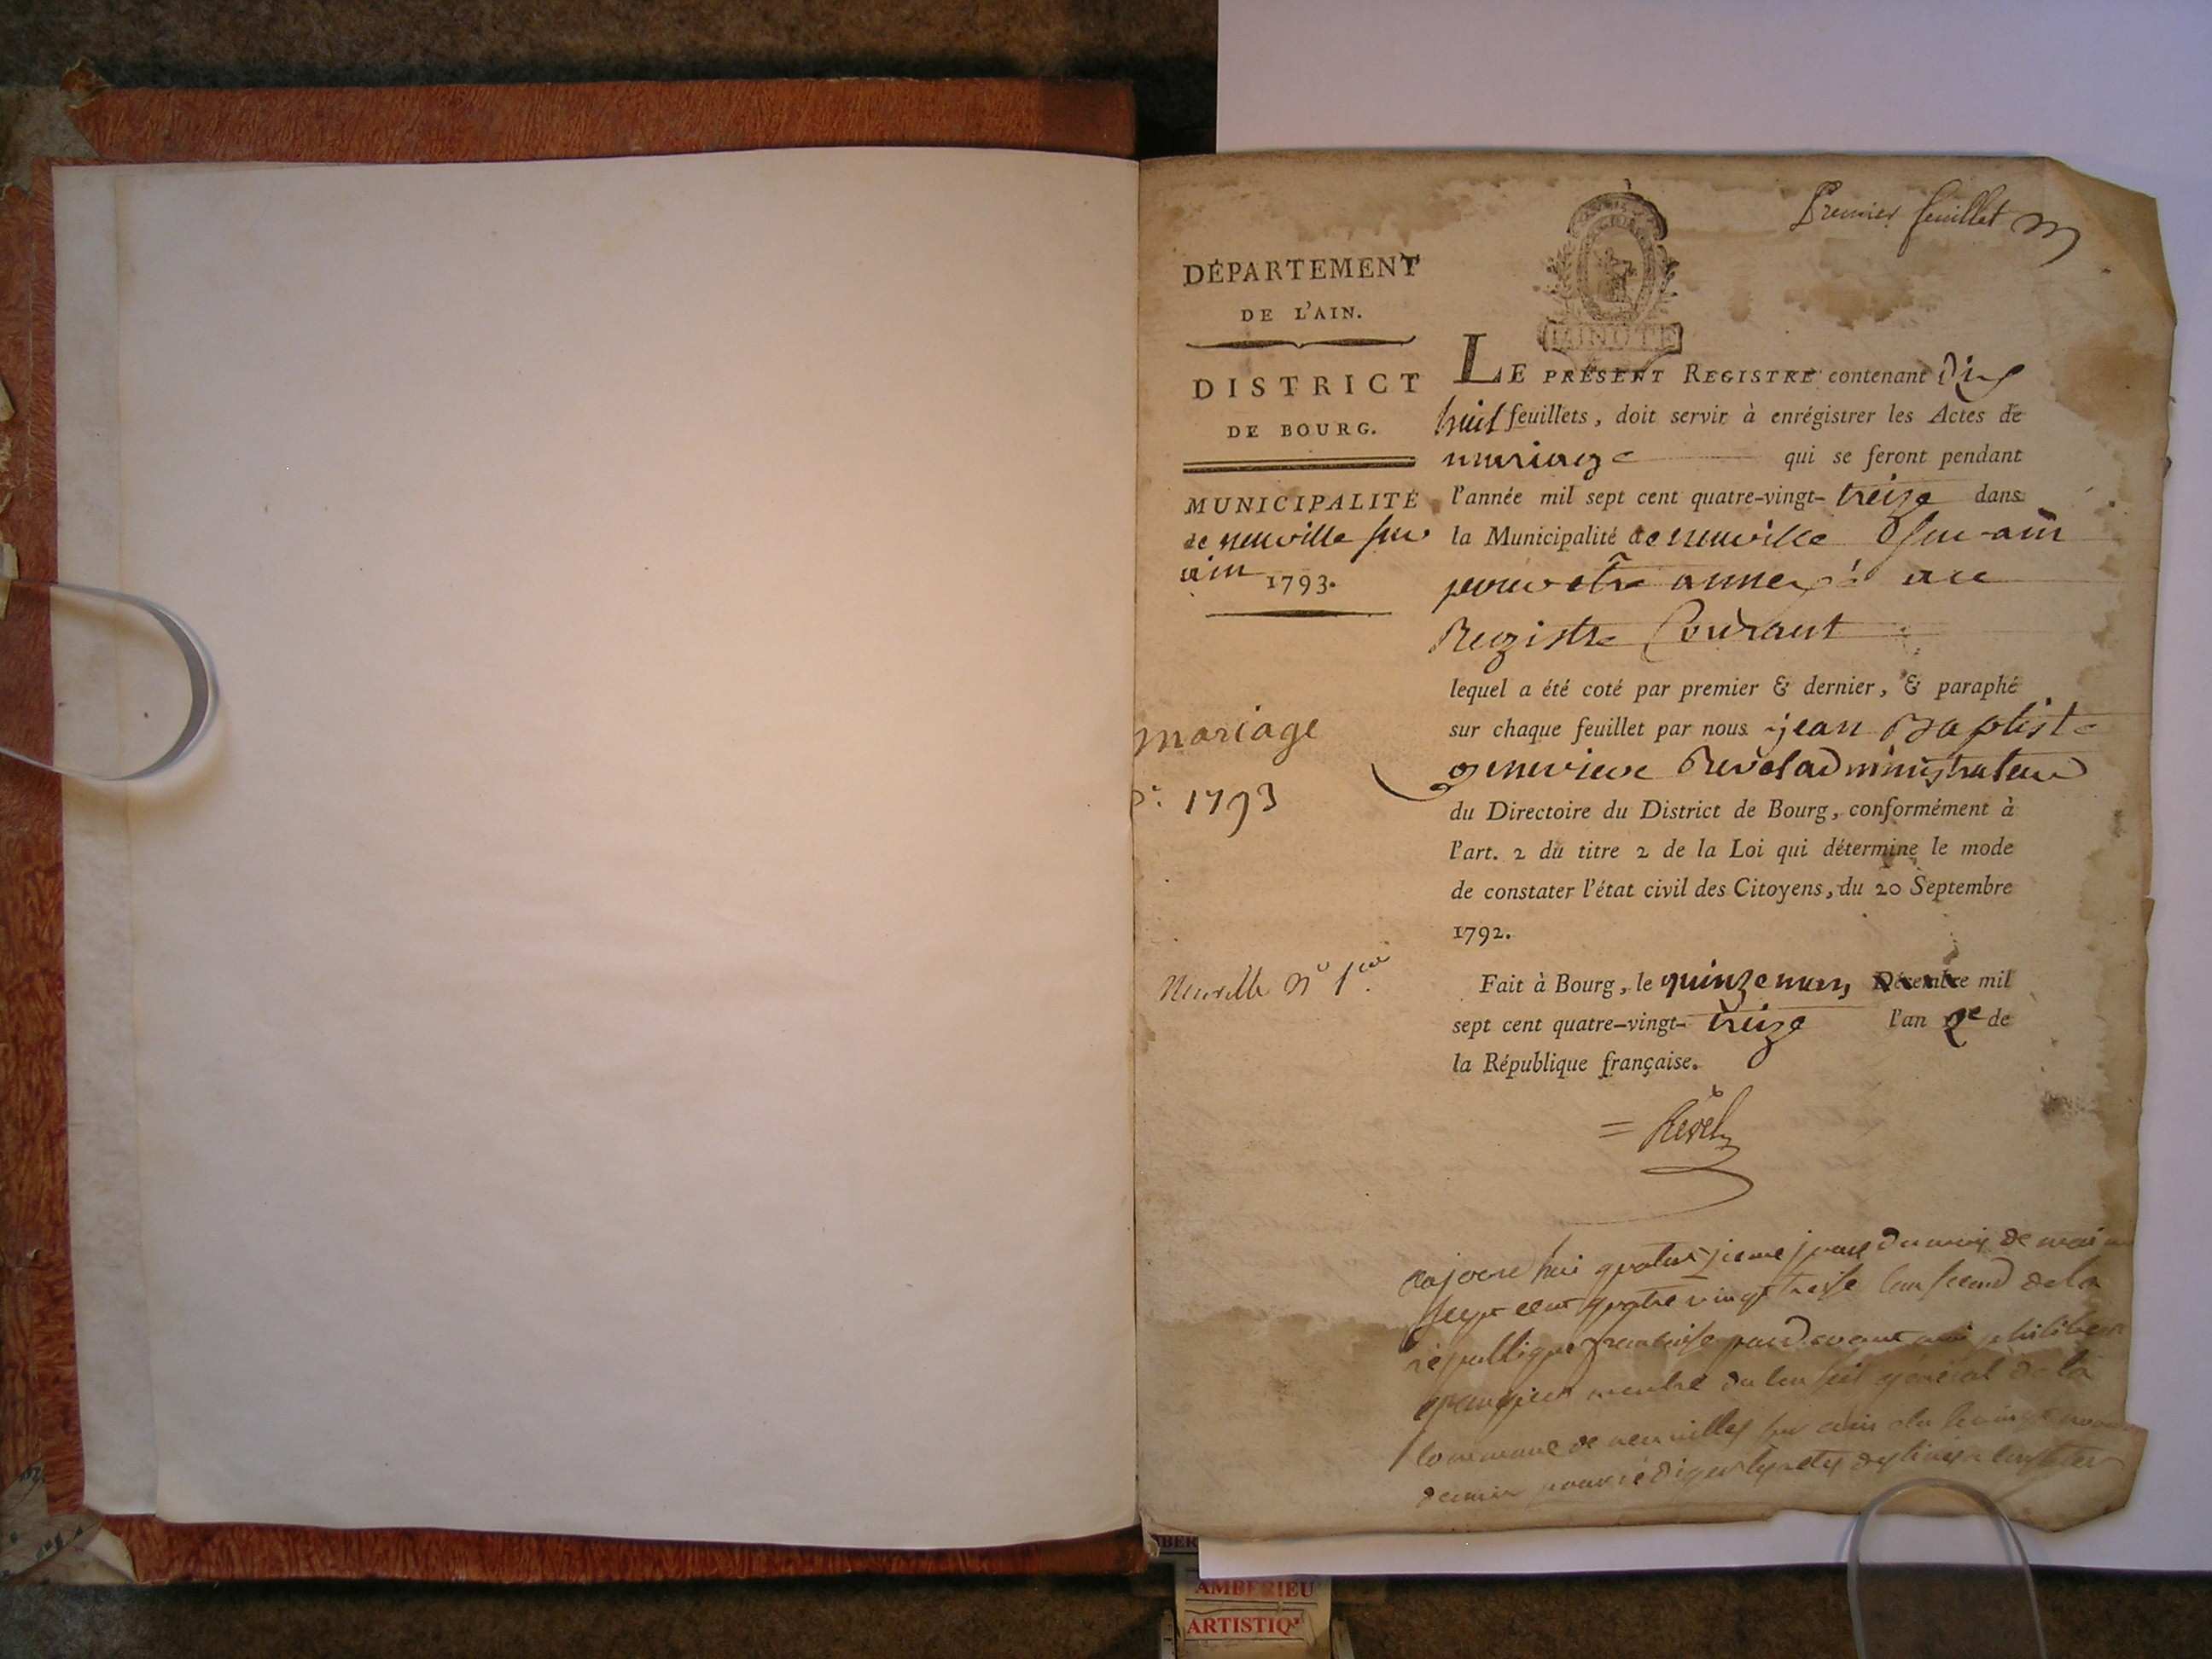 Premier feuillet
DÉPARTEMENT
DE L'AIN.
DISTRICT
DE BOURG.
MUNICIPALITÉ
de neuville sur
ain 1793.
mariage
1793
Neuville N° 1er
LE PRÉSENT REGISTRE contenant Dix
huit feuillets, doit servir à enrégistrer les Actes de
mariage qui se feront pendant
l'année mil sept cent quatre-vingt- treize dans
la Municipalité de neuville sur-ain
pour etre annexé au
Registre Courant
lequel a été coté par premier & dernier, & paraphé
sur chaque feuillet par nous jean Baptiste
genevieve Revel administrateur
du Directoire du District de Bourg, conformément à
l'art. 2 du titre 2 de la Loi qui détermine le mode
de constater l'état civil des Citoyens, du 20 Septembre
1792.
Fait à Bourg, le quinze mars Décembre mil
sept cent quatre-vingt- treize l'an 2e de
la République française.
= Revel
aujourd'hui quatorzieme jour du mois de mai
sept cent quatre vingt treise l'an second de la
république francoise par devant moi philibert
membre du Conseil général de la
Commune de neuville sur ain
dernier pour rédiger
AMBERIEU
ARTISTIQ